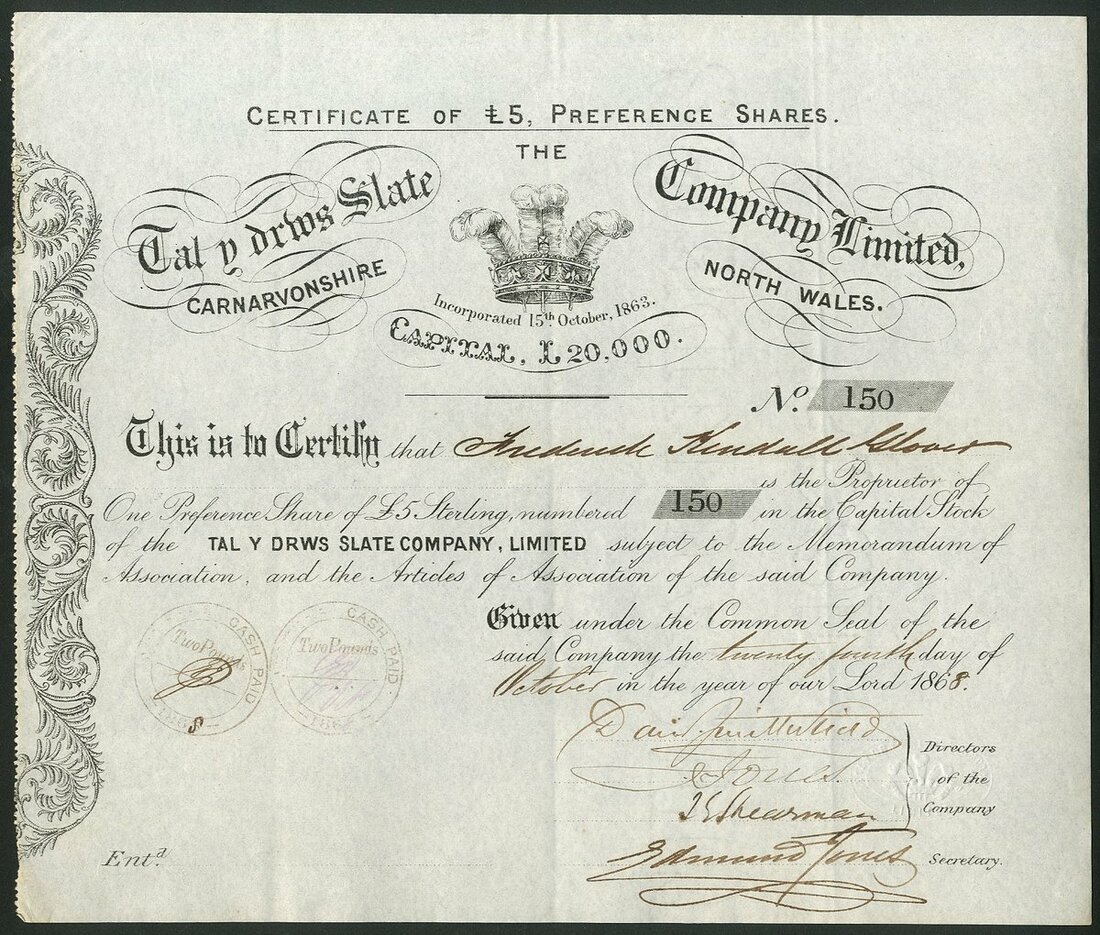 CERTIFICATE OF £5, PREFERENCE SHARES.
THE
Tal y drws Slate Company Limited,
CARNARVONSHIRE NORTH WALES.
Incorporated 15th October, 1863.
CAPITAL, L20,000.
No. 150
This is to Certify that Frederick Kendall Glover
is the Proprietor of
One Preference Share of £5 Sterling, numbered 150 in the Capital Stock
of the TAL Y DRWS SLATE COMPANY, LIMITED subject to the Memorandum of
Association, and the Articles of Association of the said Company.
Given under the Common Seal of the
said Company the twenty fourth day of
October in the year of our Lord 1868.
CASH PAID
Two Pounds
CASH PAID
Two Pounds
Jones
Shearman
Directors
of the
Company
Entd.
Edmund Jones Secretary.